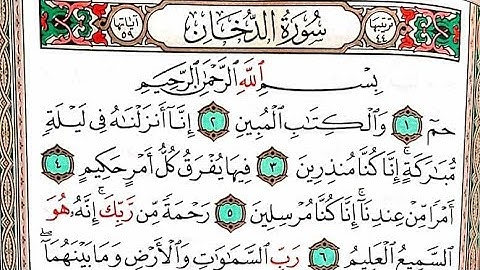 ترتيبها ٤٤
سُورَةُ الدُّخَانِ
آياتها ٥٩
بِسْمِ اللَّهِ الرَّحْمَٰنِ الرَّحِيمِ
حمٓ ١ وَالْكِتَابِ الْمُبِينِ ٢ إِنَّا أَنزَلْنَاهُ فِي لَيْلَةٍ
مُّبَارَكَةٍ ۚ إِنَّا كُنَّا مُنذِرِينَ ٣ فِيهَا يُفْرَقُ كُلُّ أَمْرٍ حَكِيمٍ ٤
أَمْرًا مِّنْ عِندِنَا ۚ إِنَّا كُنَّا مُرْسِلِينَ ٥ رَحْمَةً مِّن رَّبِّكَ ۚ إِنَّهُ هُوَ
السَّمِيعُ الْعَلِيمُ ٦ رَبِّ السَّمَٰوَٰتِ وَالْأَرْضِ وَمَا بَيْنَهُمَا ۖ